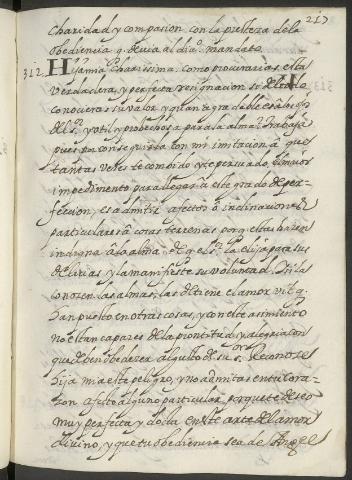 217
charidad, y compasion con la presteza de la
obediencia q. devia al divi.º mandato.
312. Hija mia charissima. como procurarias esta
verdadera, y perfecta resignacion si del todo
conocieras su valor, y quan agradable es a los ojos
del s.ʳ y util y probechosa para la alma. Trabaja
pues por conseguirla con mi imitacion, a que
tantas veces te combido, y te persuado. El mayor
impedimento para llegar a este grado de per-
feccion, es admitir afectos o inclinaciones
particulares a cosas terrenas porq. estas hacen
indigna a la alma, de q el s.ʳ la elija para sus
delicias y la manifieste su voluntad. I si la
conocen las almas, las detiene el amor vil q.
han puesto en otras cosas, y con este asimiento
no estan capaces de la prontitud, y alegria con
que deben obedecer al gusto de su s.ʳ Reconoce
hija mia este peligro, y no admitas en tu cora-
zon afecto alguno particular, porque te deseo
muy perfecta y docta en este arte del amor
divino, y que tu obediencia sea de Angel